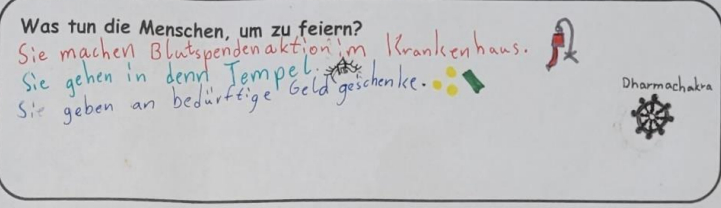 Was tun die Menschen, um zu feiern?
Sie machen Blutspendenaktion im Krankenhaus.
Sie gehen in denn Tempel.
Sie geben an bedürftige Geldgeschenke.
Dharmachakra